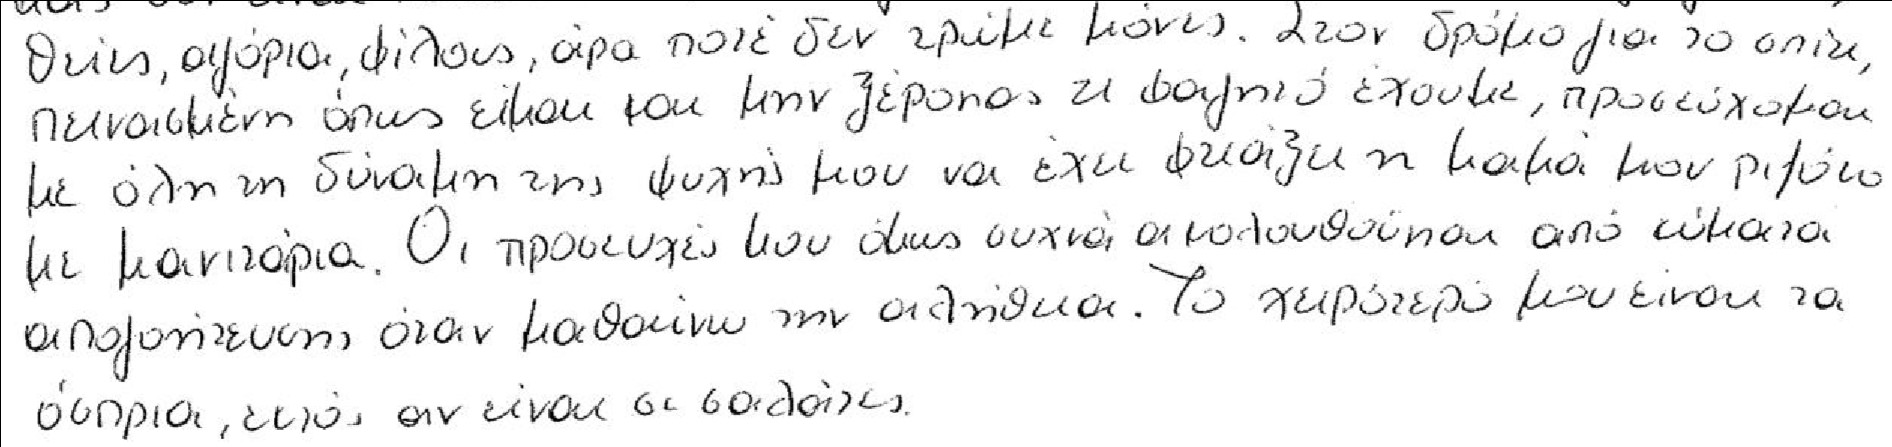 θείες, αγόρια, φίλους, άρα ποτέ δεν τρώμε μόνες. Στον δρόμο για το σπίτι,
πεινασμένη όπως είμαι και μην ξέροντας τι φαγητό έχουμε, προσεύχομαι
με όλη τη δύναμη της ψυχής μου να έχει φτιάξει η μαμά μου ριζότο
με μανιτάρια. Οι προσευχές μου όμως συχνά ακολουθούνται από κύματα
απογοήτευσης όταν μαθαίνω την αλήθεια. Το χειρότερό μου είναι τα
όσπρια, εκτός αν είναι σε σαλάτες.